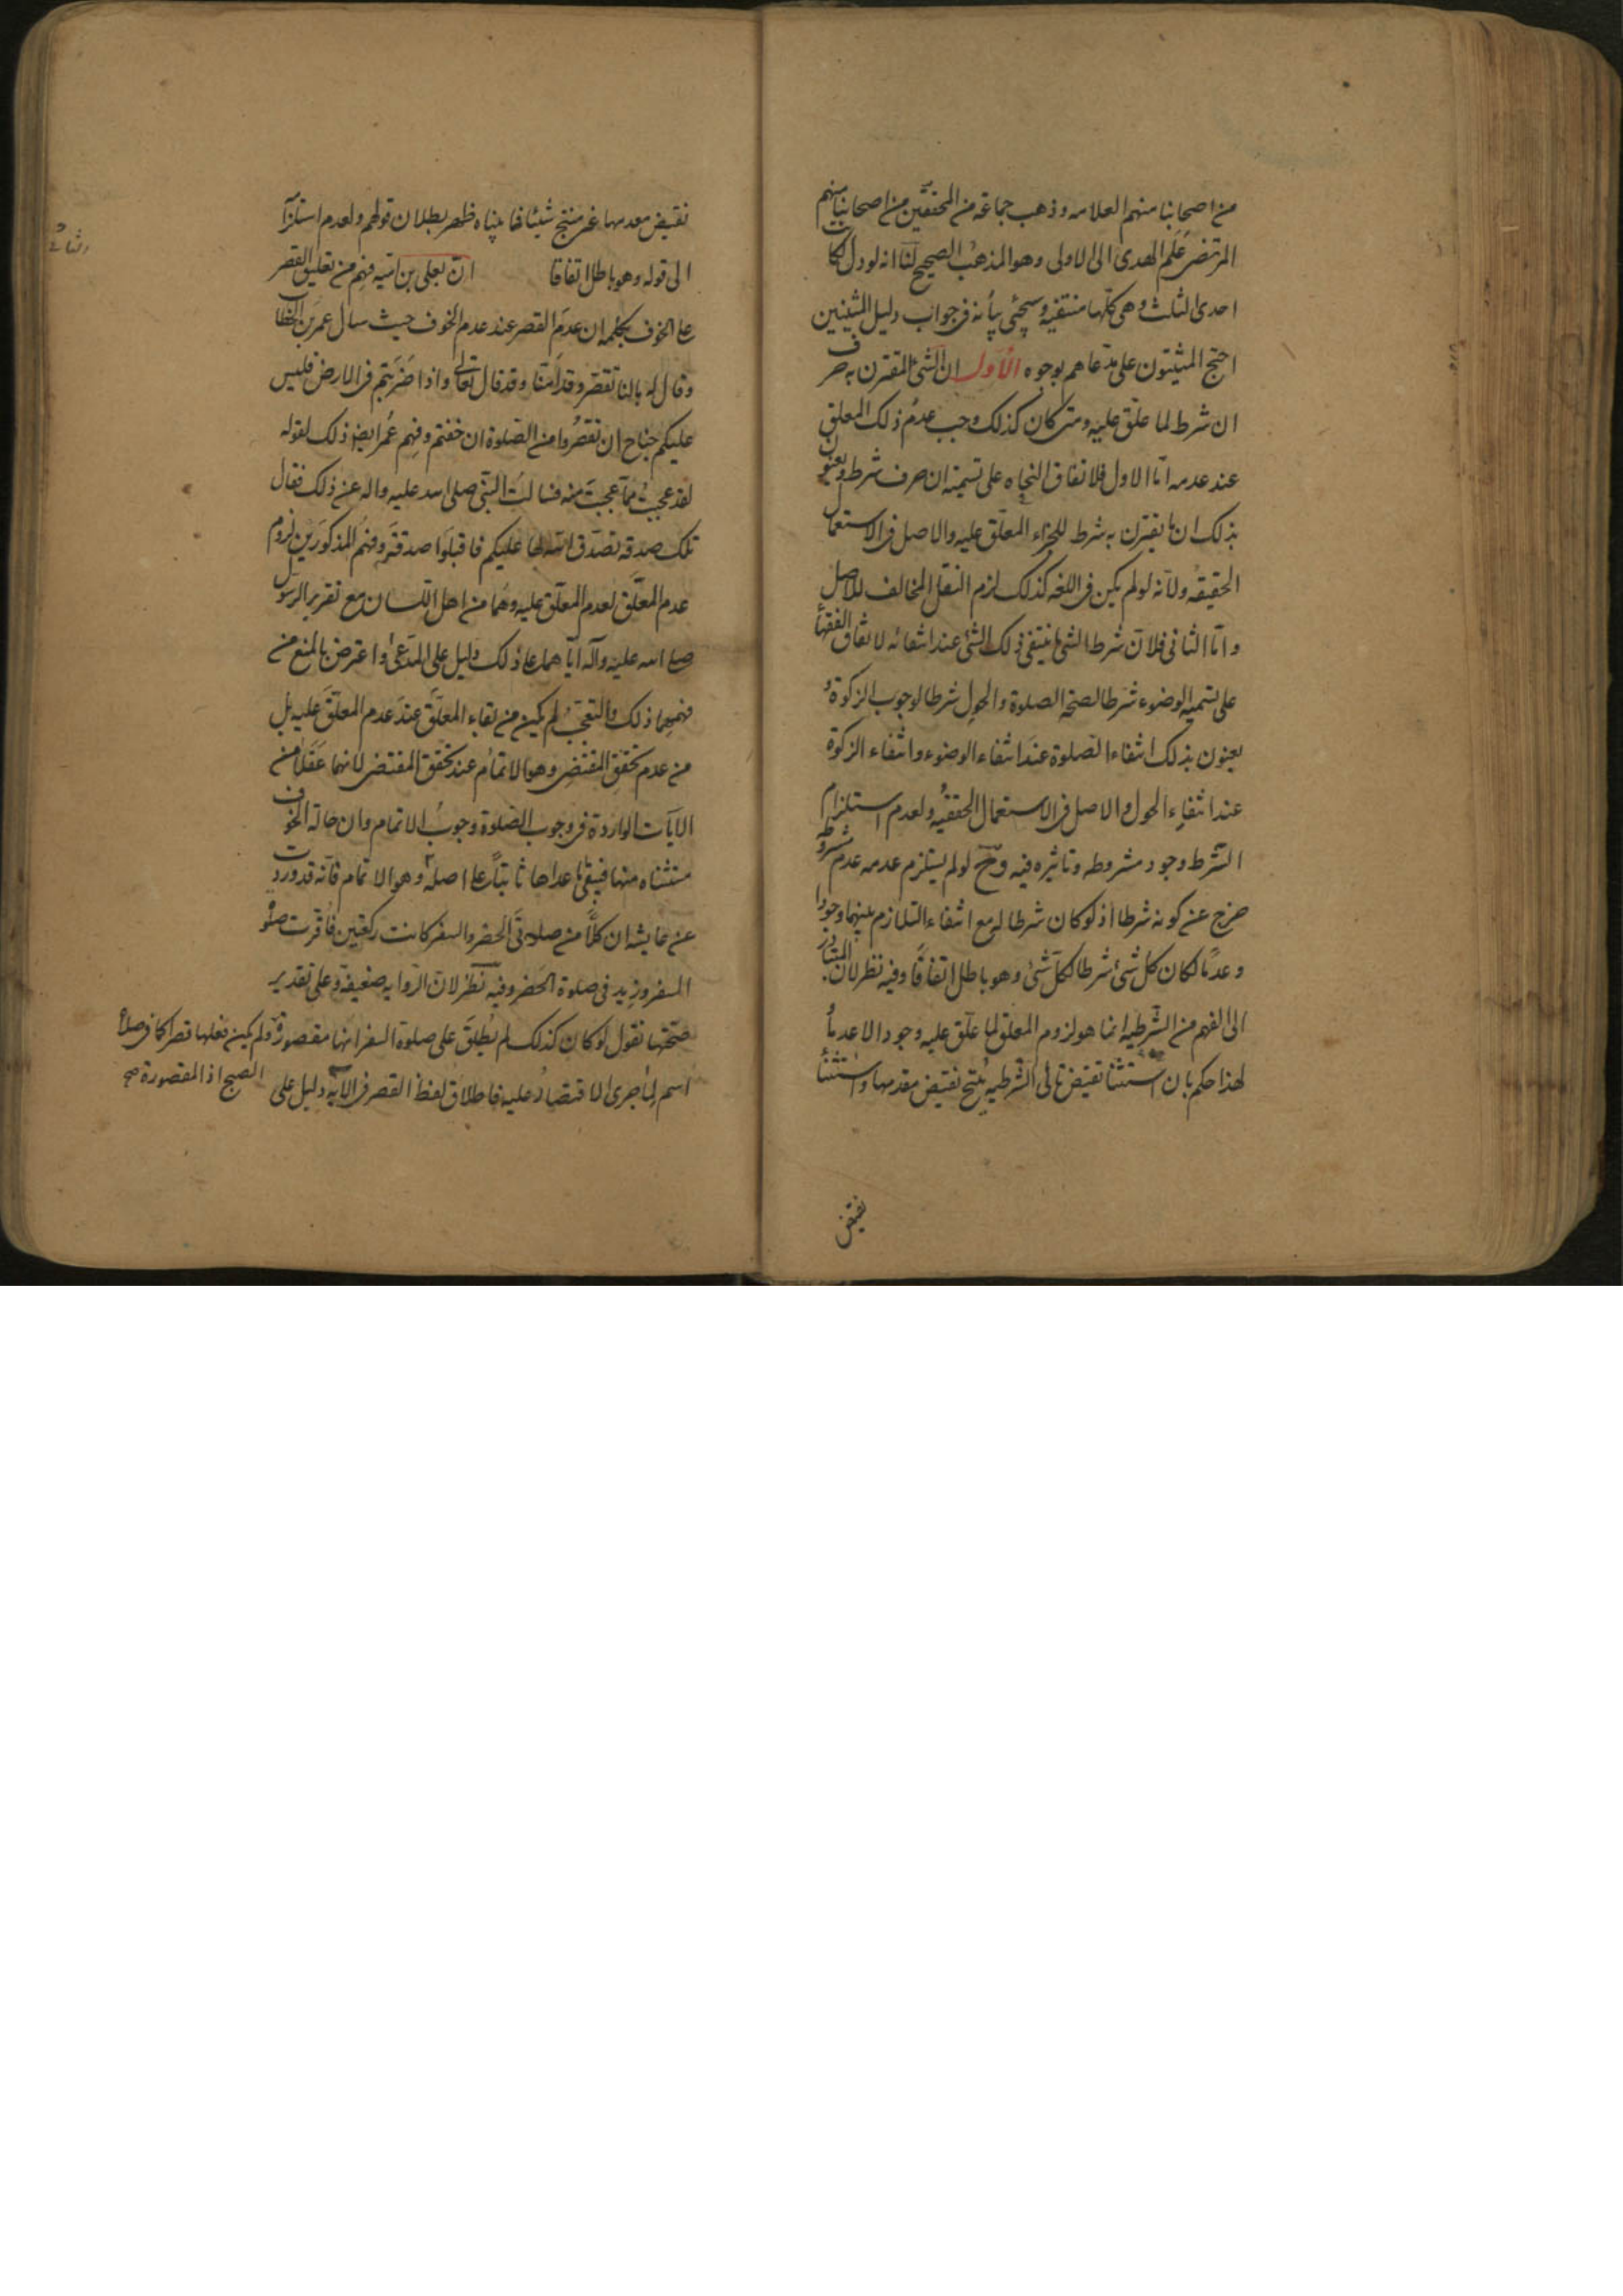 من اصحابنا منهم العلامه وذهب جماعة من المحققين من اصحابنا منهم
المرتضى علم الهدى الى الاولى وهو المذهب الصحيح لنا انه لو دل لكانت
احدى الثلث وهى كلها منتفيه وسيجئ بيانه فى جواب دليل المثبتين
احتج المثبتون على مدعاهم بوجوه الاول ان الشئ المقترن به حرف
ان شرط لما علق عليه ومتى كان كذلك وجب عدم ذلك المعلق
عند عدمه اما الاول فلاتفاق النحاه على تسميته ان حرف شرط ويعنون
بذلك ان ما يقترن به شرط للجزاء المعلق عليه والاصل فى الاستعمال
الحقيقه ولانه لو لم يكن فى اللغه كذلك لزم النقل المخالف للاصل
واما الثانى فلان شرط الشئ ما ينتفى ذلك الشئ عند انتفائه لاتفاق الفقهاء
على تسميه الوضوء شرطا لصحة الصلوة والحول شرطا لوجوب الزكوة و
يعنون بذلك انتفاء الصلوة عند انتفاء الوضوء وانتفاء الزكوة
عند انتفاء الحول والاصل فى الاستعمال الحقيقه ولعدم استلزام
الشرط وجود مشروطه وتاثيره فيه وح لو لم يستلزم عدمه عدم مشروطه
خرج عن كونه شرطا اذ لو كان شرطا له مع انتفاء التلازم بينهما وجودا
وعدما لكان كل شئ شرطا لكل شئ وهو باطل اتفاقا وفيه نظر لان المتبادر
الى الفهم من الشرطيه انما هو لزوم المعلق لما علق عليه وجودا لا عدما
لهذا حكم بان استثنا نقيض تالى الشرطيه ينتج نقيض مقدمها واستثنا
نقيض
نقيض مقدمها غير منتج شيئا فما بيناه ظهر بطلان قولهم ولعدم استلزا
الى قوله وهو باطل اتفاقا ان يعلى بن اميه فهم من تعليق القصر
على الخوف بكلمه ان عدم القصر عند عدم الخوف حيث سال عمر بن الخطاب
وقال له بالنا نقصر وقد امنا وقد قال تعالى واذا ضربتم فى الارض فليس
عليكم جناح ان تقصروا من الصلوة ان خفتم وفهم عمر ايضا ذلك لقوله
لقد عجبت مما عجبت منه فسالت النبى صلى الله عليه واله عن ذلك فقال
تلك صدقه تصدق الله بها عليكم فاقبلوا صدقته وفهم المذكورين لزوم
عدم المعلق لعدم المعلق عليه وهما من اهل اللسان مع تقرير الرسول
صلى الله عليه وآله اياهما على ذلك دليل على المدعى واعترض بالمنع من
فهمهما ذلك والتعجب لم يكن من بقاء المعلق عند عدم المعلق عليه بل
من عدم تحقق المقتضى وهو الاتمام عند تحقق المقتضى لانهما عقلا من
الآيات الواردة فى وجوب الصلوة وجوب الاتمام وان حالة الخوف
مستثناه منها فيبقى ما عداها ثابتا على اصله وهو الاتمام فانه قد وردت
عن عايشه ان كلا من صلوتى الحضر والسفر كانت ركعتين فاقرت صلوة
السفر وزيد فى صلوة الحضر وفيه نظر لان الروايه ضعيفة وعلى تقدير
صحتها نقول لو كان كذلك لم يطلق على صلوة السفر انها مقصورة ولم يكن فعلها قصرا كما فى صلاة
الصبح اذ المقصورة صح
اسم لما جرى الاقتصار عليه فاطلاق لفظ القصر فى الآيه دليل على
والثانى